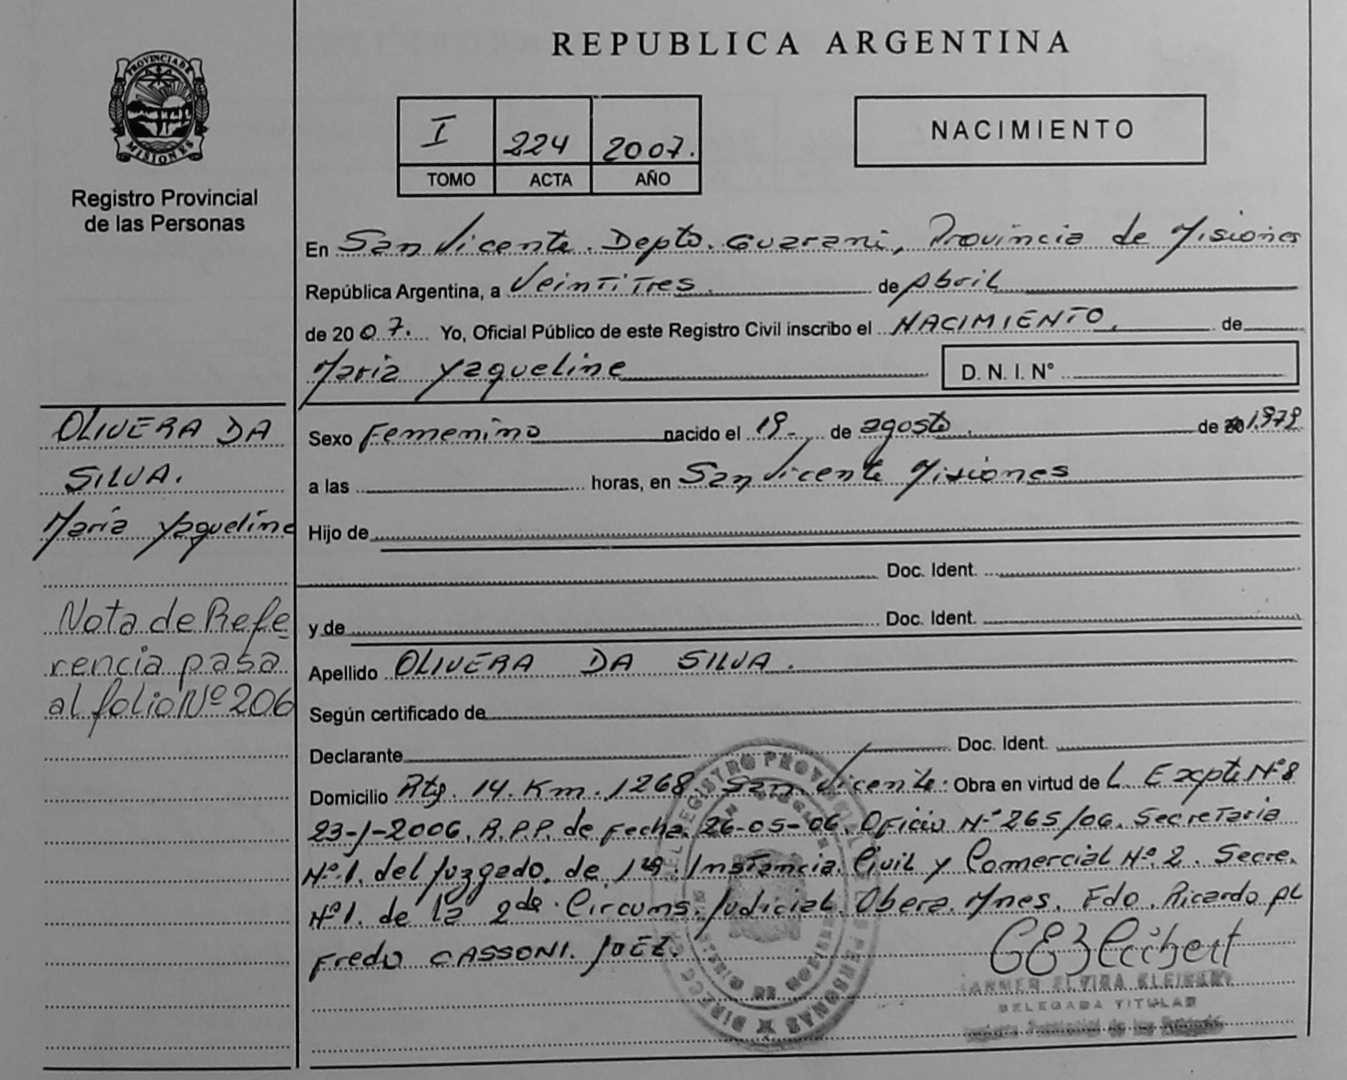 REPUBLICA ARGENTINA
PROVINCIA DE
MISIONES
Registro Provincial
de las Personas
I 224 2007.
TOMO ACTA AÑO
NACIMIENTO
En San Vicente. Depto. Guarani, Provincia de Misiones
República Argentina, a Veintitres. de Abril
de 2007. Yo, Oficial Público de este Registro Civil inscribo el NACIMIENTO, de
Maria Yaqueline D. N. I. N°
OLIVERA DA
SILVA.
Maria Yaqueline
Nota de Refe
rencia pasa
al folio Nº 206
Sexo Femenino nacido el 19-, de agosto. de 20 1.979
a las horas, en San Vicente Misiones
Hijo de
Doc. Ident.
y de Doc. Ident.
Apellido OLIVERA DA SILVA.
Según certificado de
Declarante Doc. Ident.
Domicilio Rta. 14. Km. 1268. San Vicente. Obra en virtud de L. Expte Nº 8
23-J-2006. A.P.P. de Fecha. 26-05-06. Oficio Nº 265/06. Secretaria
Nº.1. del Juzgado. de 1ra. Instancia. Civil y Comercial Nº.2. Secre.
Nº1. de la 2da. Circuns. Judicial. Obera. Mnes. Fdo. Ricardo AL
Fredo CASSONI. JUEZ.
ELVIRA
DELEGADA TITULAR